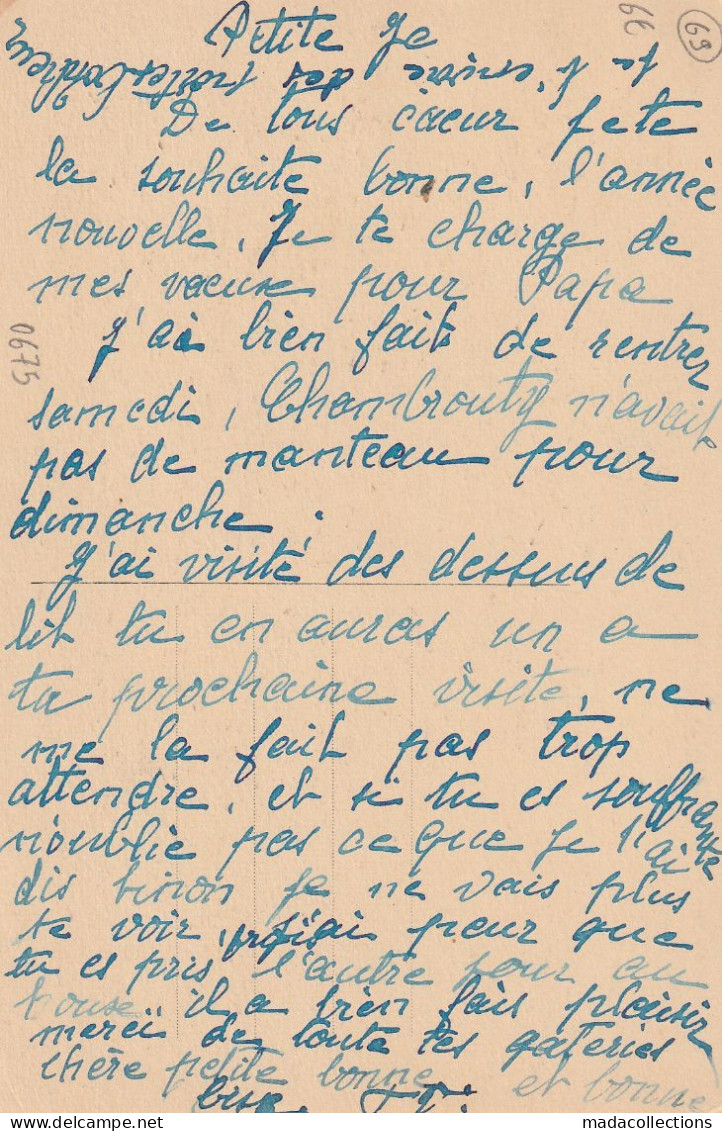 Petite Je
69
De tous cœur fete
la souhaite bonne, l'année
nouvelle, Je te charge de
mes vœux pour Papa
0675
J'ai bien fait de rentrer
samedi, Chambrouty n'avait
pas de manteau pour
dimanche.
J'ai visité des dessus de
lit tu en auras un a
ta prochaine visite, ne
me la fait pas trop
attendre, et si tu es souffrante
n'oublie pas ce que je t'ai
dis sinon je ne vais plus
te voir, j'ai peur que
tu es pris froid l'autre jour au
il a bien fais plaisir
merci de toute tes gateries
chère petite bonne et bonne
bise.
madacollections